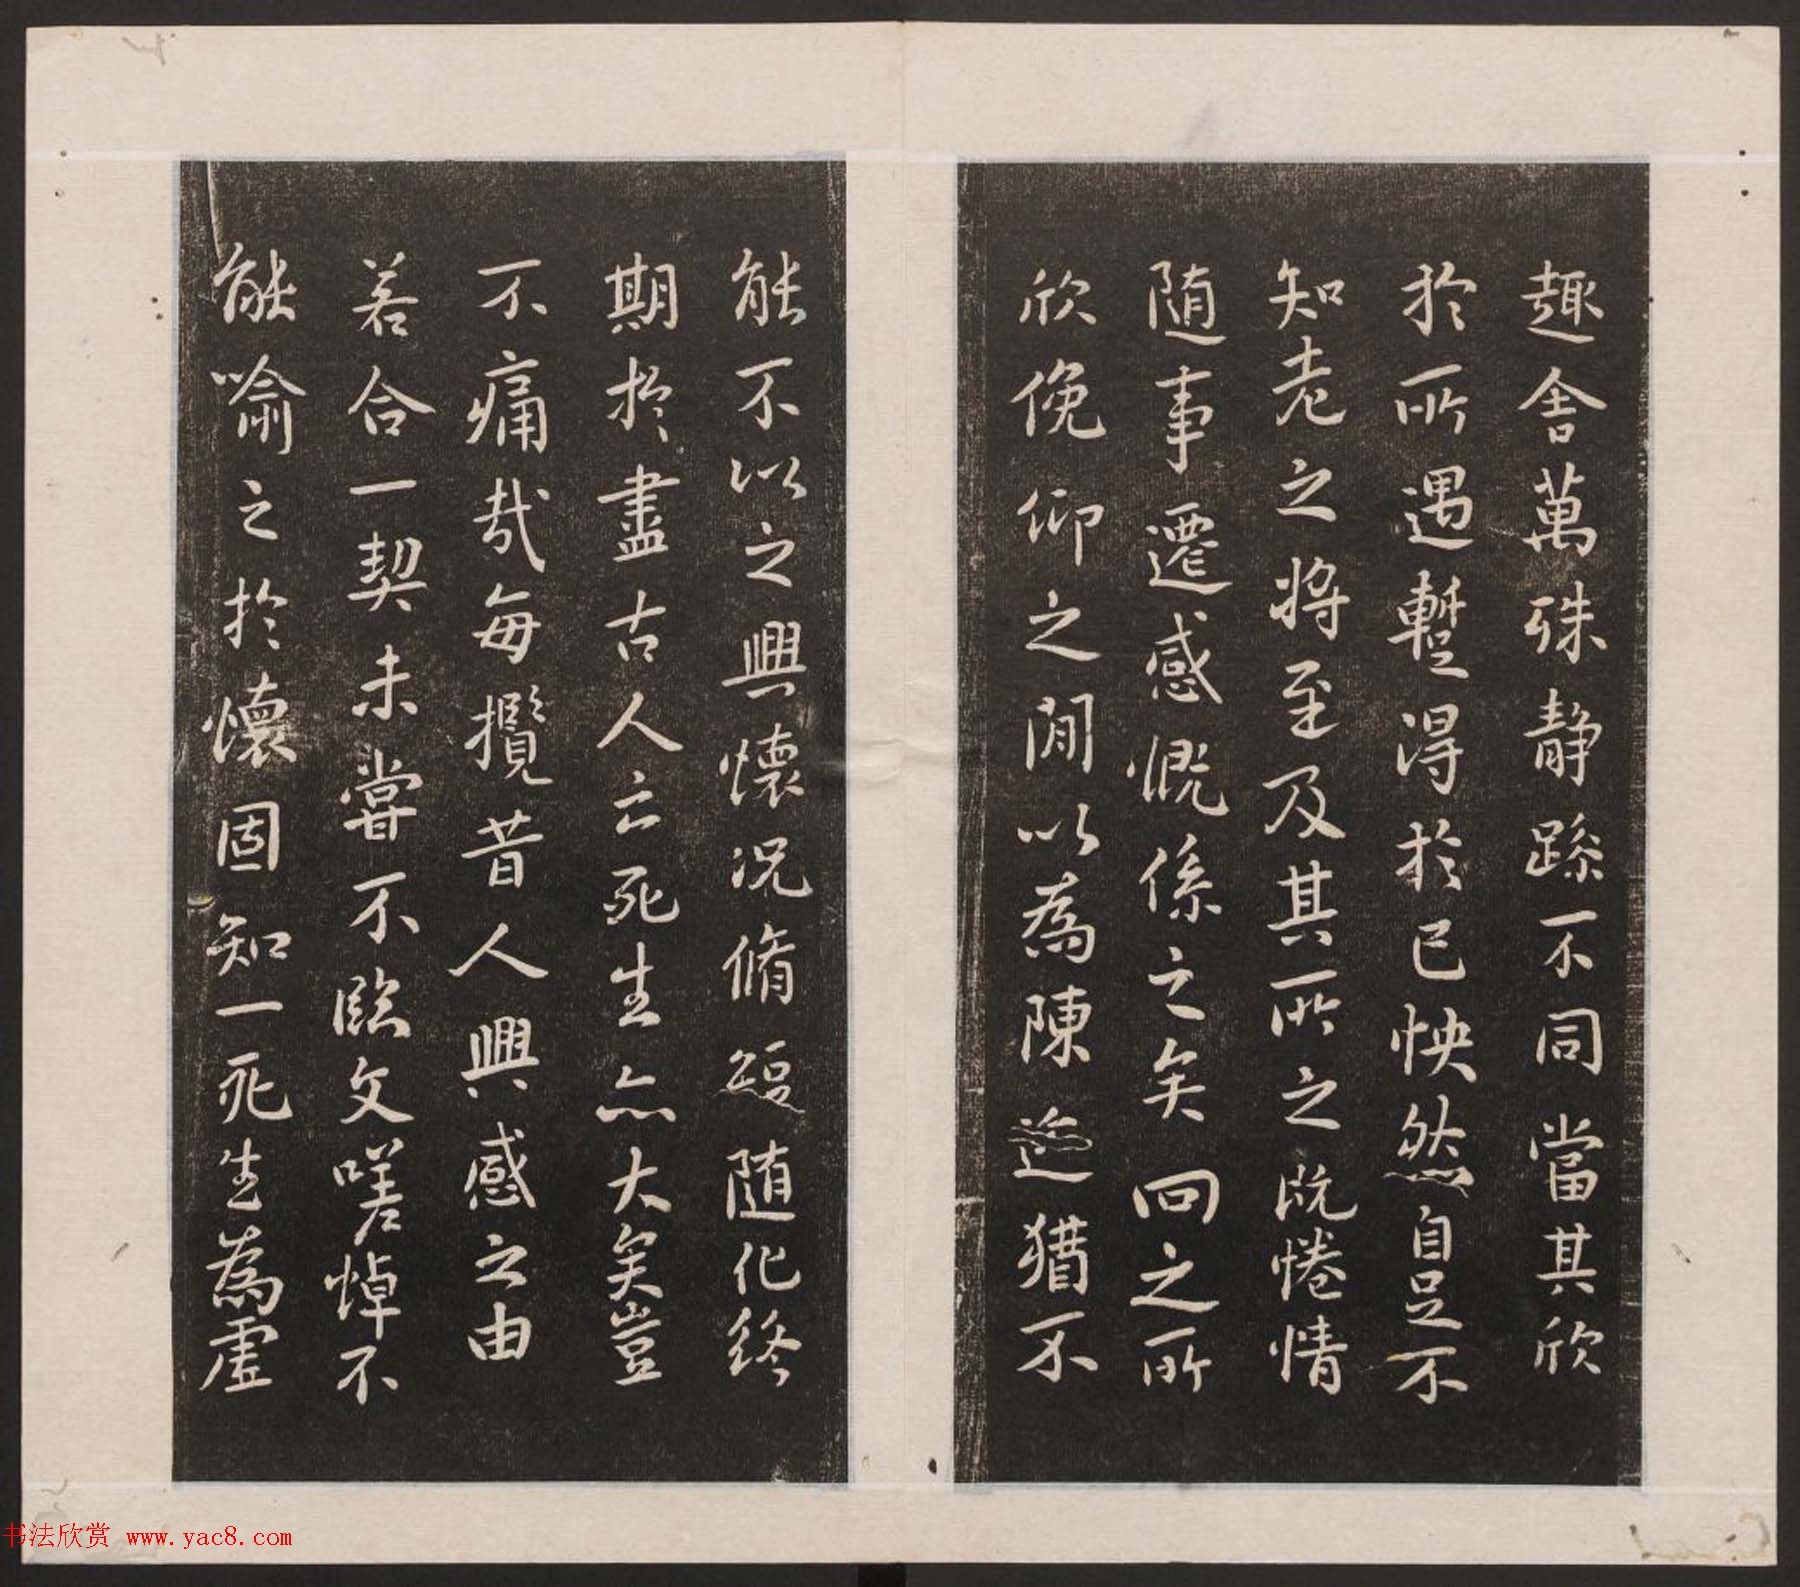 趣舍萬殊静躁不同當其欣
於所遇蹔得於己怏然自足不
知老之將至及其所之既惓情
随事遷感慨係之矣向之所
欣俛仰之閒以為陳迹猶不
能不以之興懷況脩短随化終
期於盡古人云死生亦大矣豈
不痛哉每攬昔人興感之由
若合一契未嘗不臨文嗟悼不
能喻之於懷固知一死生為虛
书法欣赏 www.yac8.com